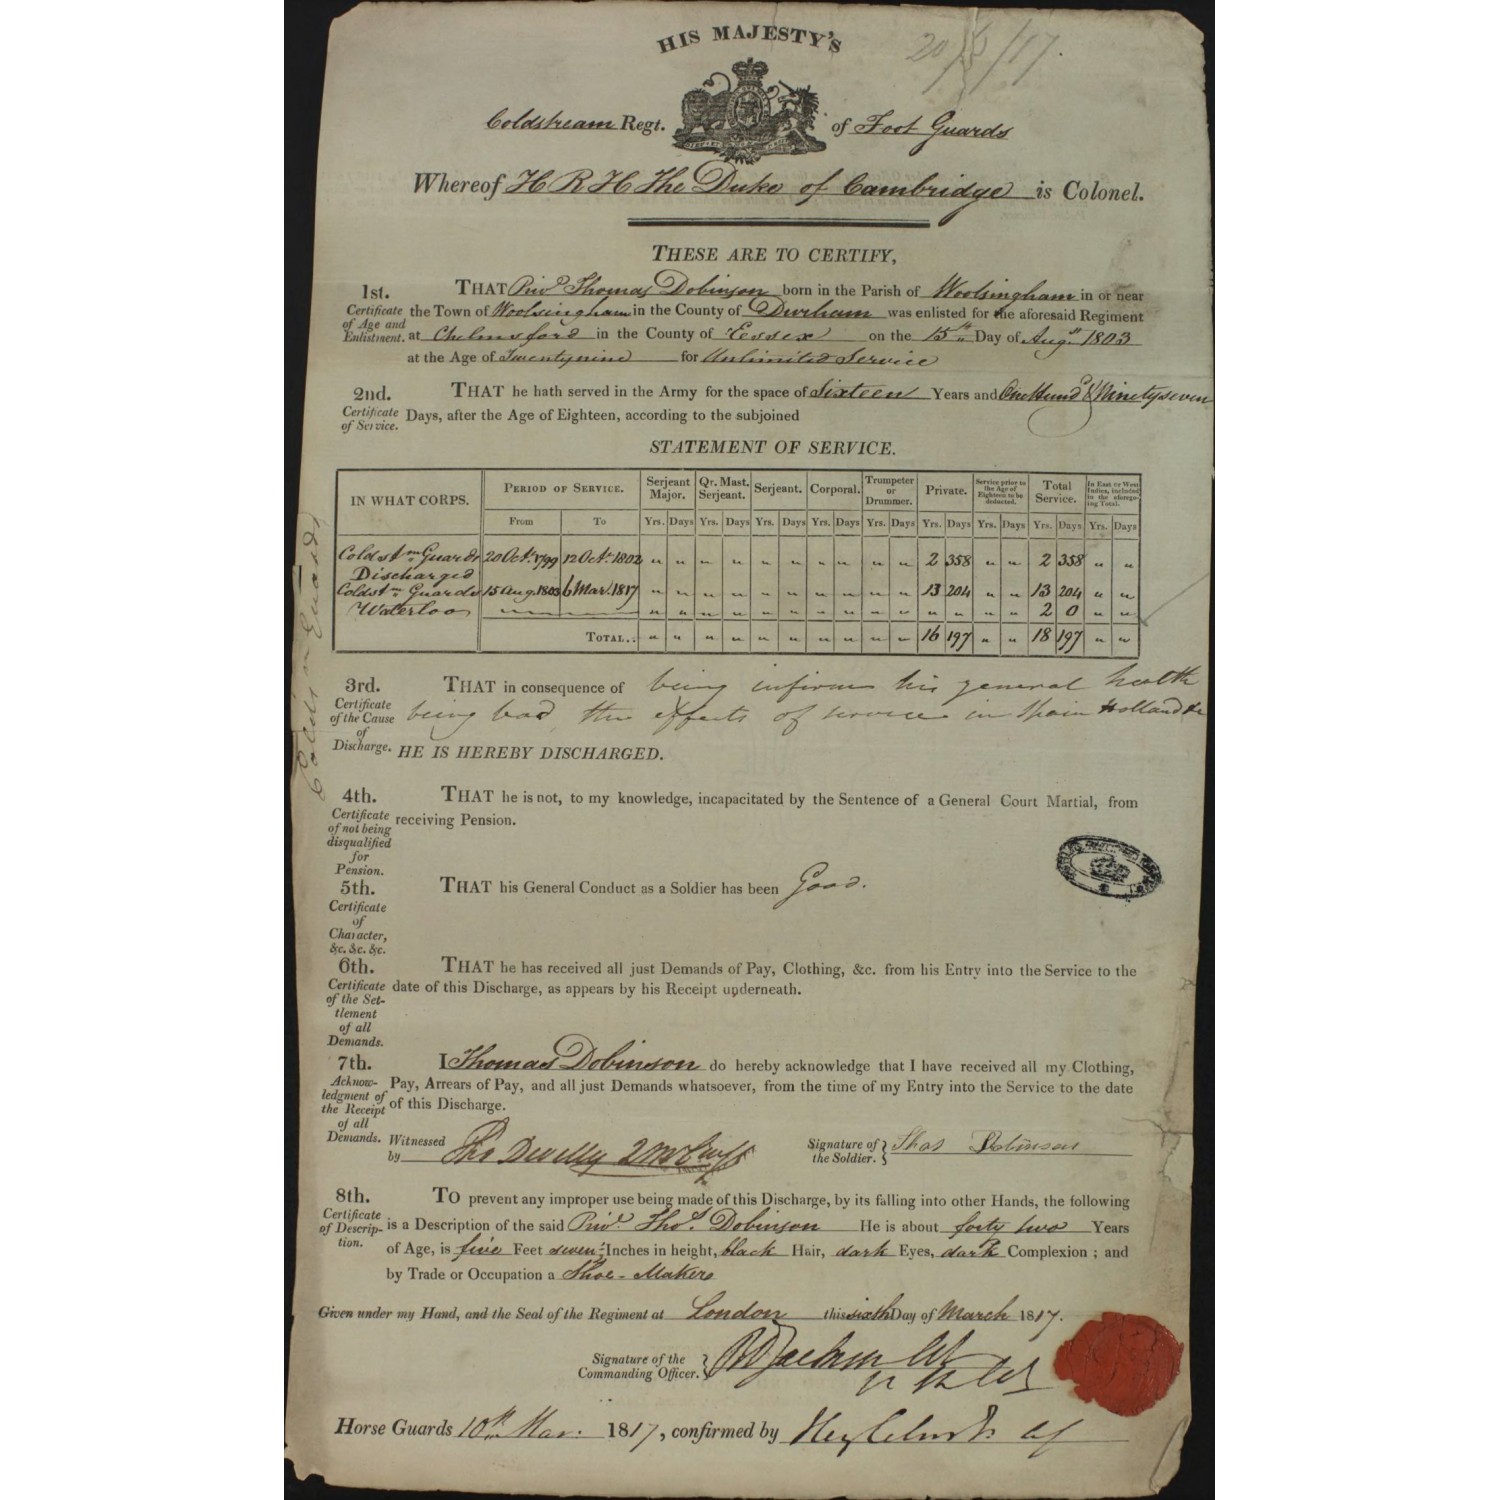 HIS MAJESTY'S
20/5/17.
Coldstream Regt. of Foot Guards
Whereof H R H The Duke of Cambridge is Colonel.
THESE ARE TO CERTIFY,
1st. Certificate of Age and Enlistment.
THAT Privt Thomas Dobinson born in the Parish of Woolsingham in or near
the Town of Woolsingham in the County of Durham was enlisted for the aforesaid Regiment
at Chelmsford in the County of Essex on the 15th Day of Augt 1803
at the Age of Twentynine for Unlimited Service
2nd. Certificate of Service.
THAT he hath served in the Army for the space of Sixteen Years and One Hund.d & Ninetyseven
Days, after the Age of Eighteen, according to the subjoined
STATEMENT OF SERVICE.
IN WHAT CORPS. PERIOD OF SERVICE. Serjeant Major. Qr. Mast. Serjeant. Serjeant. Corporal. Trumpeter or Drummer. Private. Service prior to the Age of Eighteen to be deducted. Total Service. In East or West Indies, included in the aforegoing Total.
From To Yrs. Days Yrs. Days Yrs. Days Yrs. Days Yrs. Days Yrs. Days Yrs. Days Yrs. Days Yrs. Days
Coldstm Guards 20 Oct. 1799 12 Oct. 1802 " " " " " " " " " " 2 358 " " 2 358 " "
Discharged
Coldstm Guards 15 Aug. 1803 6 Mar. 1817 " " " " " " " " " " 13 204 " " 13 204 " "
Waterloo " " " " " " " " " " " " " " 2 0 " "
TOTAL.. " " " " " " " " " " 16 197 " " 18 197 " "
Coldsm Guards
3rd. Certificate of the Cause of Discharge.
THAT in consequence of being infirm his general health
being bad the effects of service in Spain Holland &c
HE IS HEREBY DISCHARGED.
4th. Certificate of not being disqualified for Pension.
THAT he is not, to my knowledge, incapacitated by the Sentence of a General Court Martial, from
receiving Pension.
5th. Certificate of Character, &c. &c. &c.
THAT his General Conduct as a Soldier has been Good.
6th. Certificate of the Settlement of all Demands.
THAT he has received all just Demands of Pay, Clothing, &c. from his Entry into the Service to the
date of this Discharge, as appears by his Receipt underneath.
7th. Acknowledgment of the Receipt of all Demands.
I Thomas Dobinson do hereby acknowledge that I have received all my Clothing,
Pay, Arrears of Pay, and all just Demands whatsoever, from the time of my Entry into the Service to the date
of this Discharge.
Witnessed by Signature of the Soldier. Thos Dobinson
8th. Certificate of Description.
TO prevent any improper use being made of this Discharge, by its falling into other Hands, the following
is a Description of the said Privt. Thos. Dobinson He is about forty two Years
of Age, is five Feet seven Inches in height, black Hair, dark Eyes, dark Complexion ; and
by Trade or Occupation a Shoe-Maker
Given under my Hand, and the Seal of the Regiment at London this sixth Day of March 1817.
Signature of the Commanding Officer.
Horse Guards 10th Mar. 1817, confirmed by